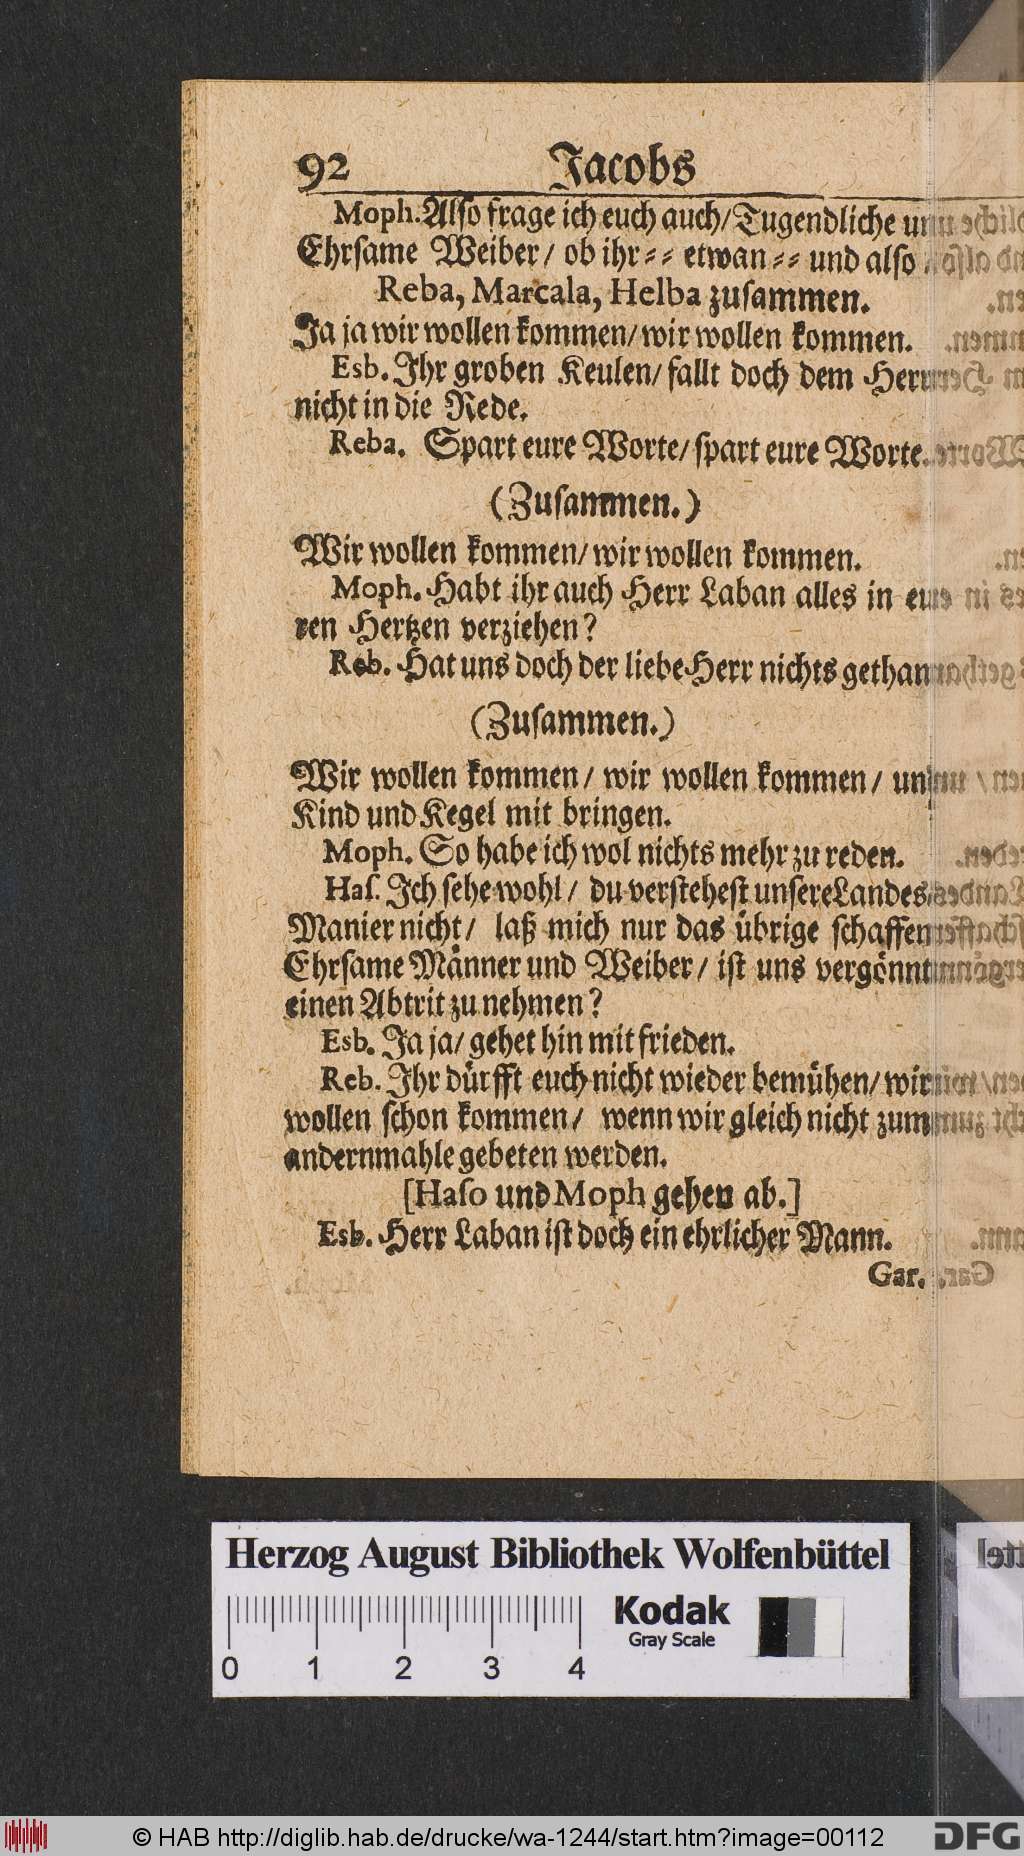 92 Jacobs
Moph. Alſo frage ich euch auch/ Tugendliche un
Ehrſame Weiber/ ob ihr⸗⸗ etwan⸗⸗ und alſo
Reba, Marcala, Helba zuſammen.
Ja ja wir wollen kommen/ wir wollen kommen.
Esb. Ihr groben Keulen/ fallt doch dem Herrn
nicht in die Rede.
Reba. Spart eure Worte/ ſpart eure Worte.
(Zuſammen.)
Wir wollen kommen/ wir wollen kommen.
Moph. Habt ihr auch Herr Laban alles in eu⸗
ren Hertzen verziehen?
Reb. Hat uns doch der liebe Herr nichts gethan
(Zuſammen.)
Wir wollen kommen/ wir wollen kommen/ un
Kind und Kegel mit bringen.
Moph. So habe ich wol nichts mehr zu reden.
Haſ. Ich ſehe wohl/ du verſteheſt unſere Landes⸗
Manier nicht/ laß mich nur das übrige ſchaffen
Ehrſame Männer und Weiber/ iſt uns vergönnt
einen Abtrit zu nehmen?
Esb. Ja ja/ gehet hin mit frieden.
Reb. Ihr dürfft euch nicht wieder bemühen/ wir
wollen ſchon kommen/ wenn wir gleich nicht zum
andernmahle gebeten werden.
[Haſo und Moph gehen ab.]
Esb. Herr Laban iſt doch ein ehrlicher Mann.
Gar.
Herzog August Bibliothek Wolfenbüttel
Kodak
Gray Scale
0 1 2 3 4
© HAB http://diglib.hab.de/drucke/wa-1244/start.htm?image=00112
DFG